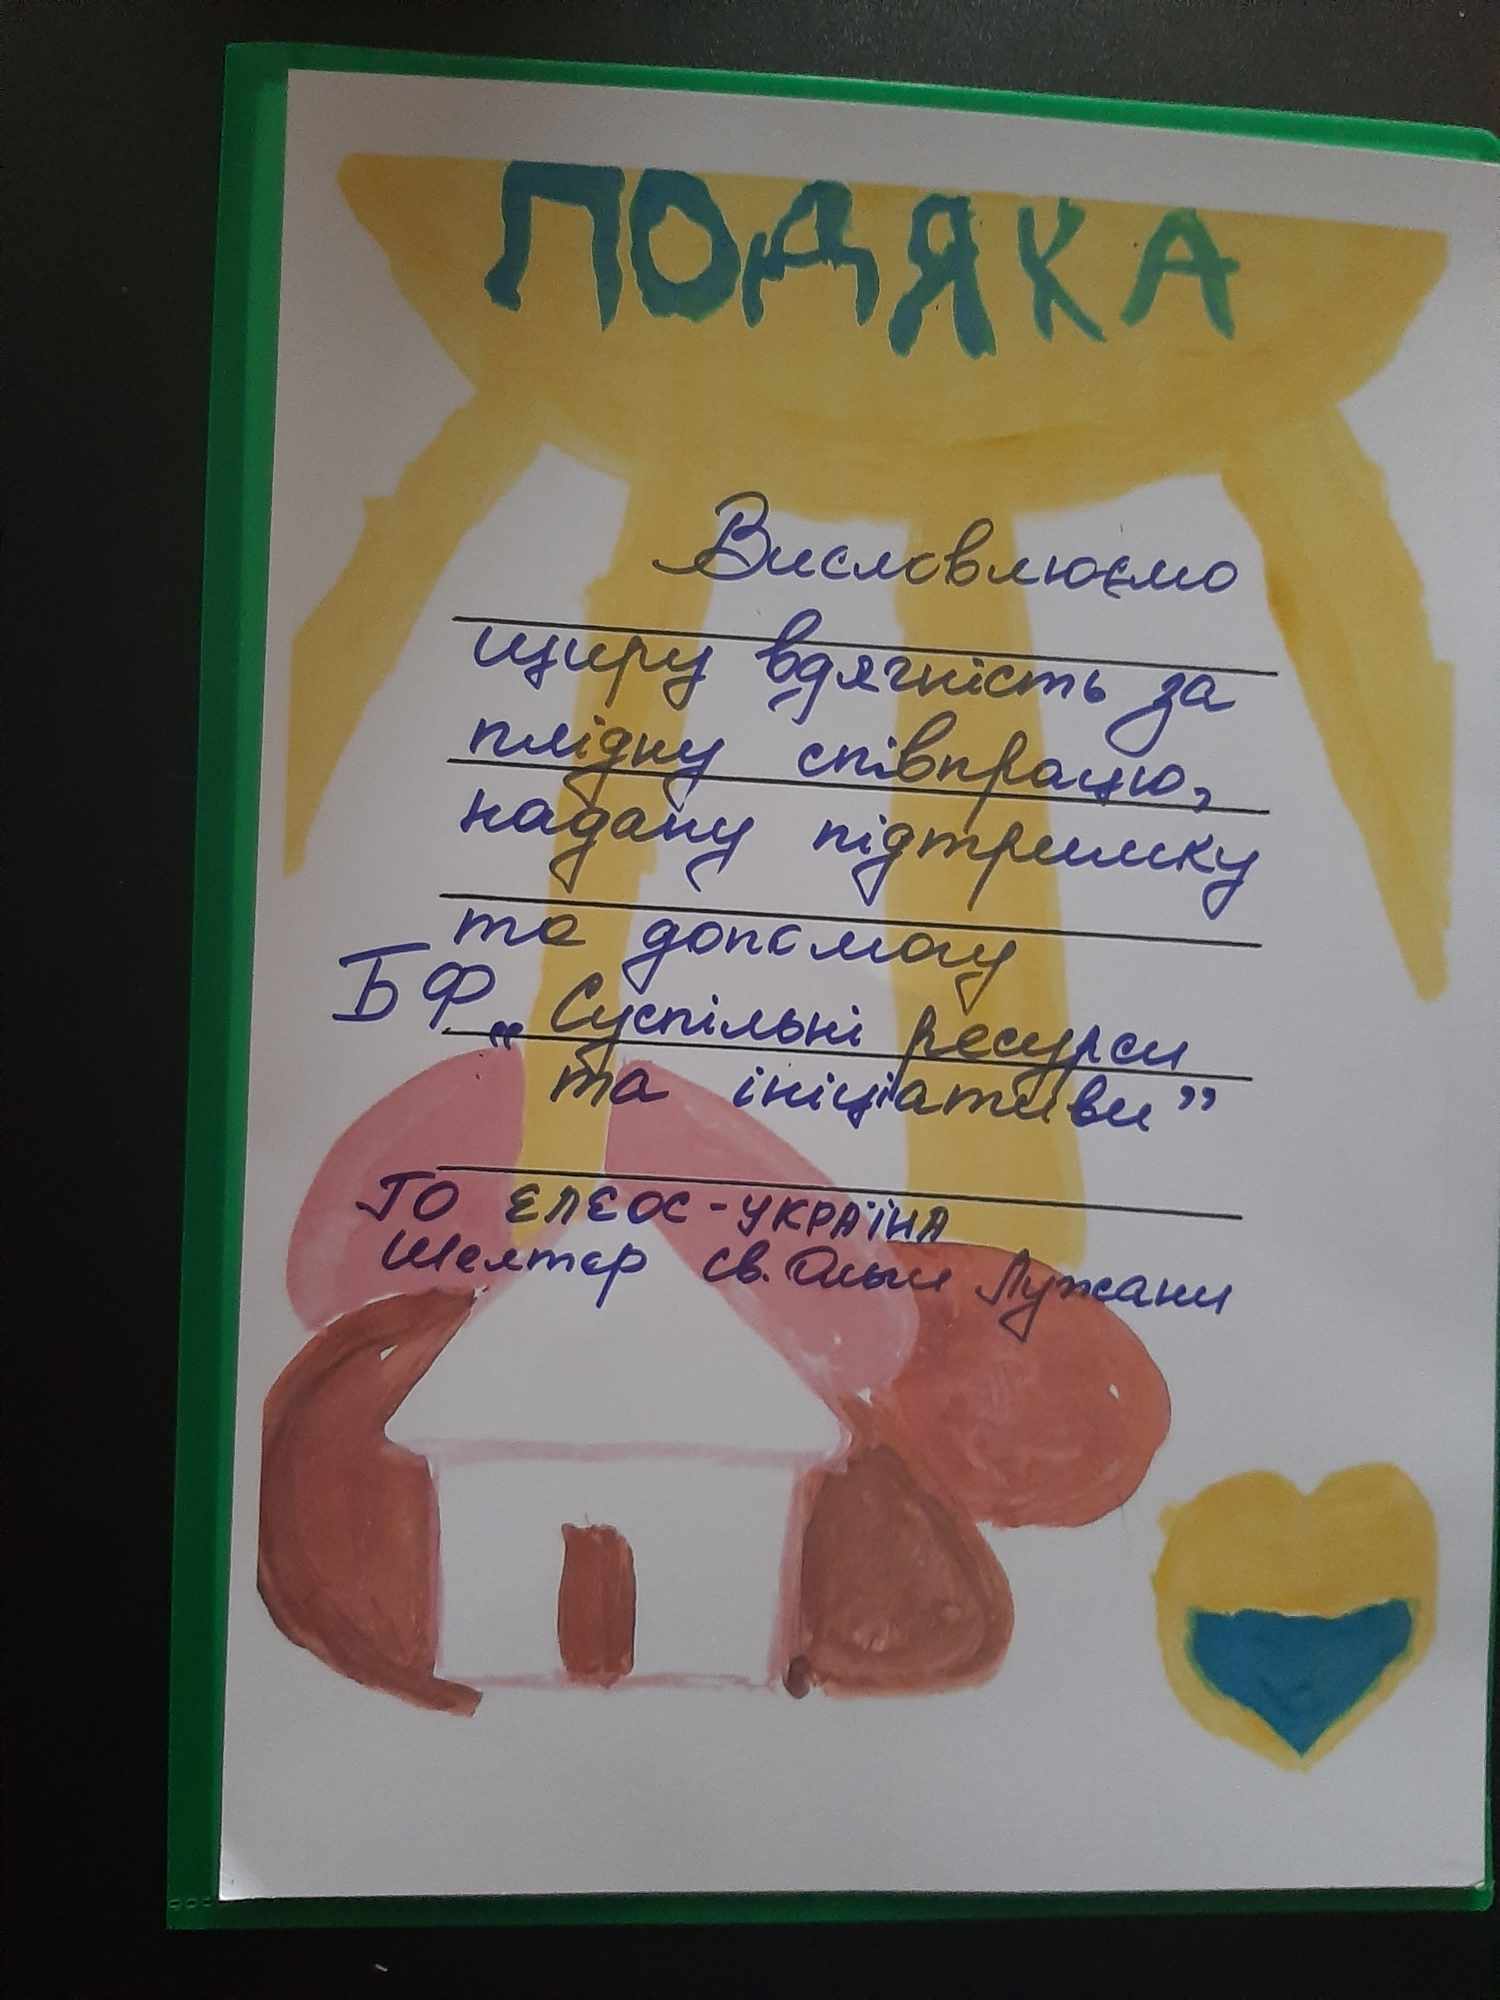 ПОДЯКА
Висловлюємо
щиру вдячність за
плідну співпрацю,
надану підтримку
та допомогу
БФ „Суспільні ресурси
та ініціативи”
ГО ЕЛЕОС-УКРАЇНА
Шелтер св. Ольги Лужани